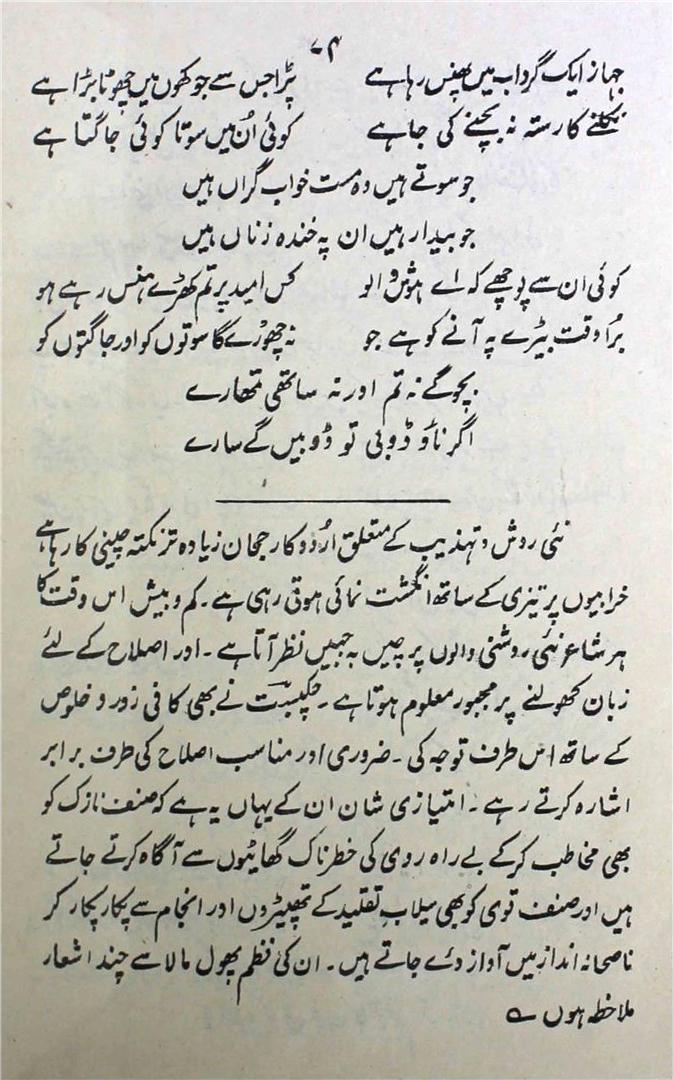 ۷۴
جہاز ایک گرداب میں پھنس رہا ہے پڑا جس سے جوکھوں میں چھوٹا بڑا ہے
نکلنے کا رستہ نہ بچنے کی جا ہے کوئی اُن میں سوتا کوئی جاگتا ہے
جو سوتے ہیں وہ مست خواب گراں ہیں
جو بیدار ہیں ان پہ خندہ زناں ہیں
کوئی ان سے پوچھے کہ اے ہوش والو کس امید پر تم کھڑے ہنس رہے ہو
برُا وقت بیڑے پہ آنے کو ہے جو نہ چھوڑے گا سوتوں کو اور جاگتوں کو
بچوگے نہ تم اور نہ ساتھی تمھارے
اگر ناؤ ڈوبی تو ڈوبیں گے سارے
نئی روش و تہذیب کے متعلق اُردو کا رجحان زیادہ تر نکتہ چینی کا رہا ہے
خرابیوں پر تیزی کے ساتھ انگشت نمائی ہوتی رہی ہے۔ کم و بیش اس وقت کا
ہر شاعر نئی روشنی والوں پر چیں بہ جبیں نظر آتا ہے۔ اور اصلاح کے لئے
زبان کھولنے پر مجبور معلوم ہوتا ہے۔ چکبست نے بھی کافی زور و خلوص
کے ساتھ اس طرف توجہ کی۔ ضروری اور مناسب اصلاح کی طرف برابر
اشارہ کرتے رہے۔ امتیازی شان ان کے یہاں یہ ہے کہ صنف نازک کو
بھی مخاطب کرکے بے راہ روی کی خطرناک گھاٹیوں سے آگاہ کرتے جاتے
ہیں اور صنف قوی کو بھی سیلاب تقلید کے تھپیڑوں اور انجام سے پکار پکار کر
ناصحانہ انداز میں آواز دئے جاتے ہیں۔ ان کی نظم پھول مالا سے چند اشعار
ملاحظہ ہوں ؎